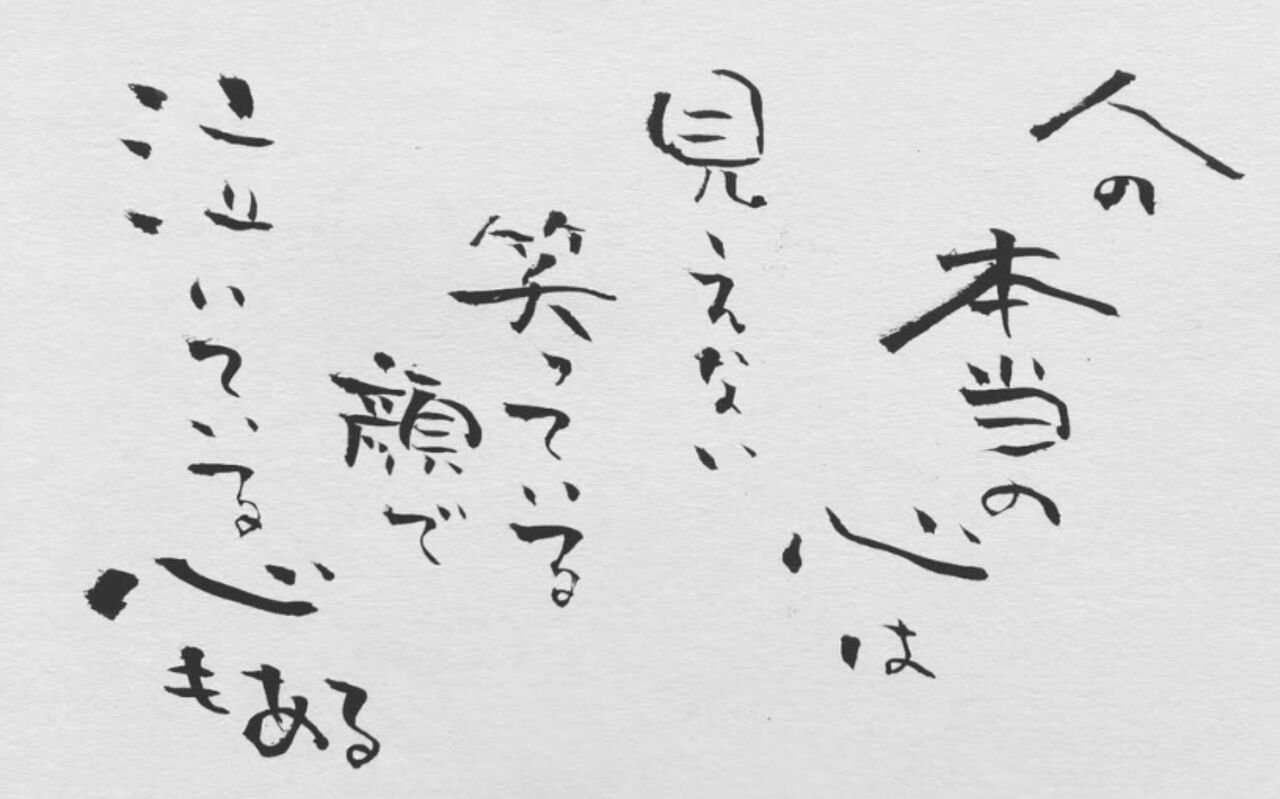 人の本当の心は
見えない
笑っている
顔で
泣いている心
もある